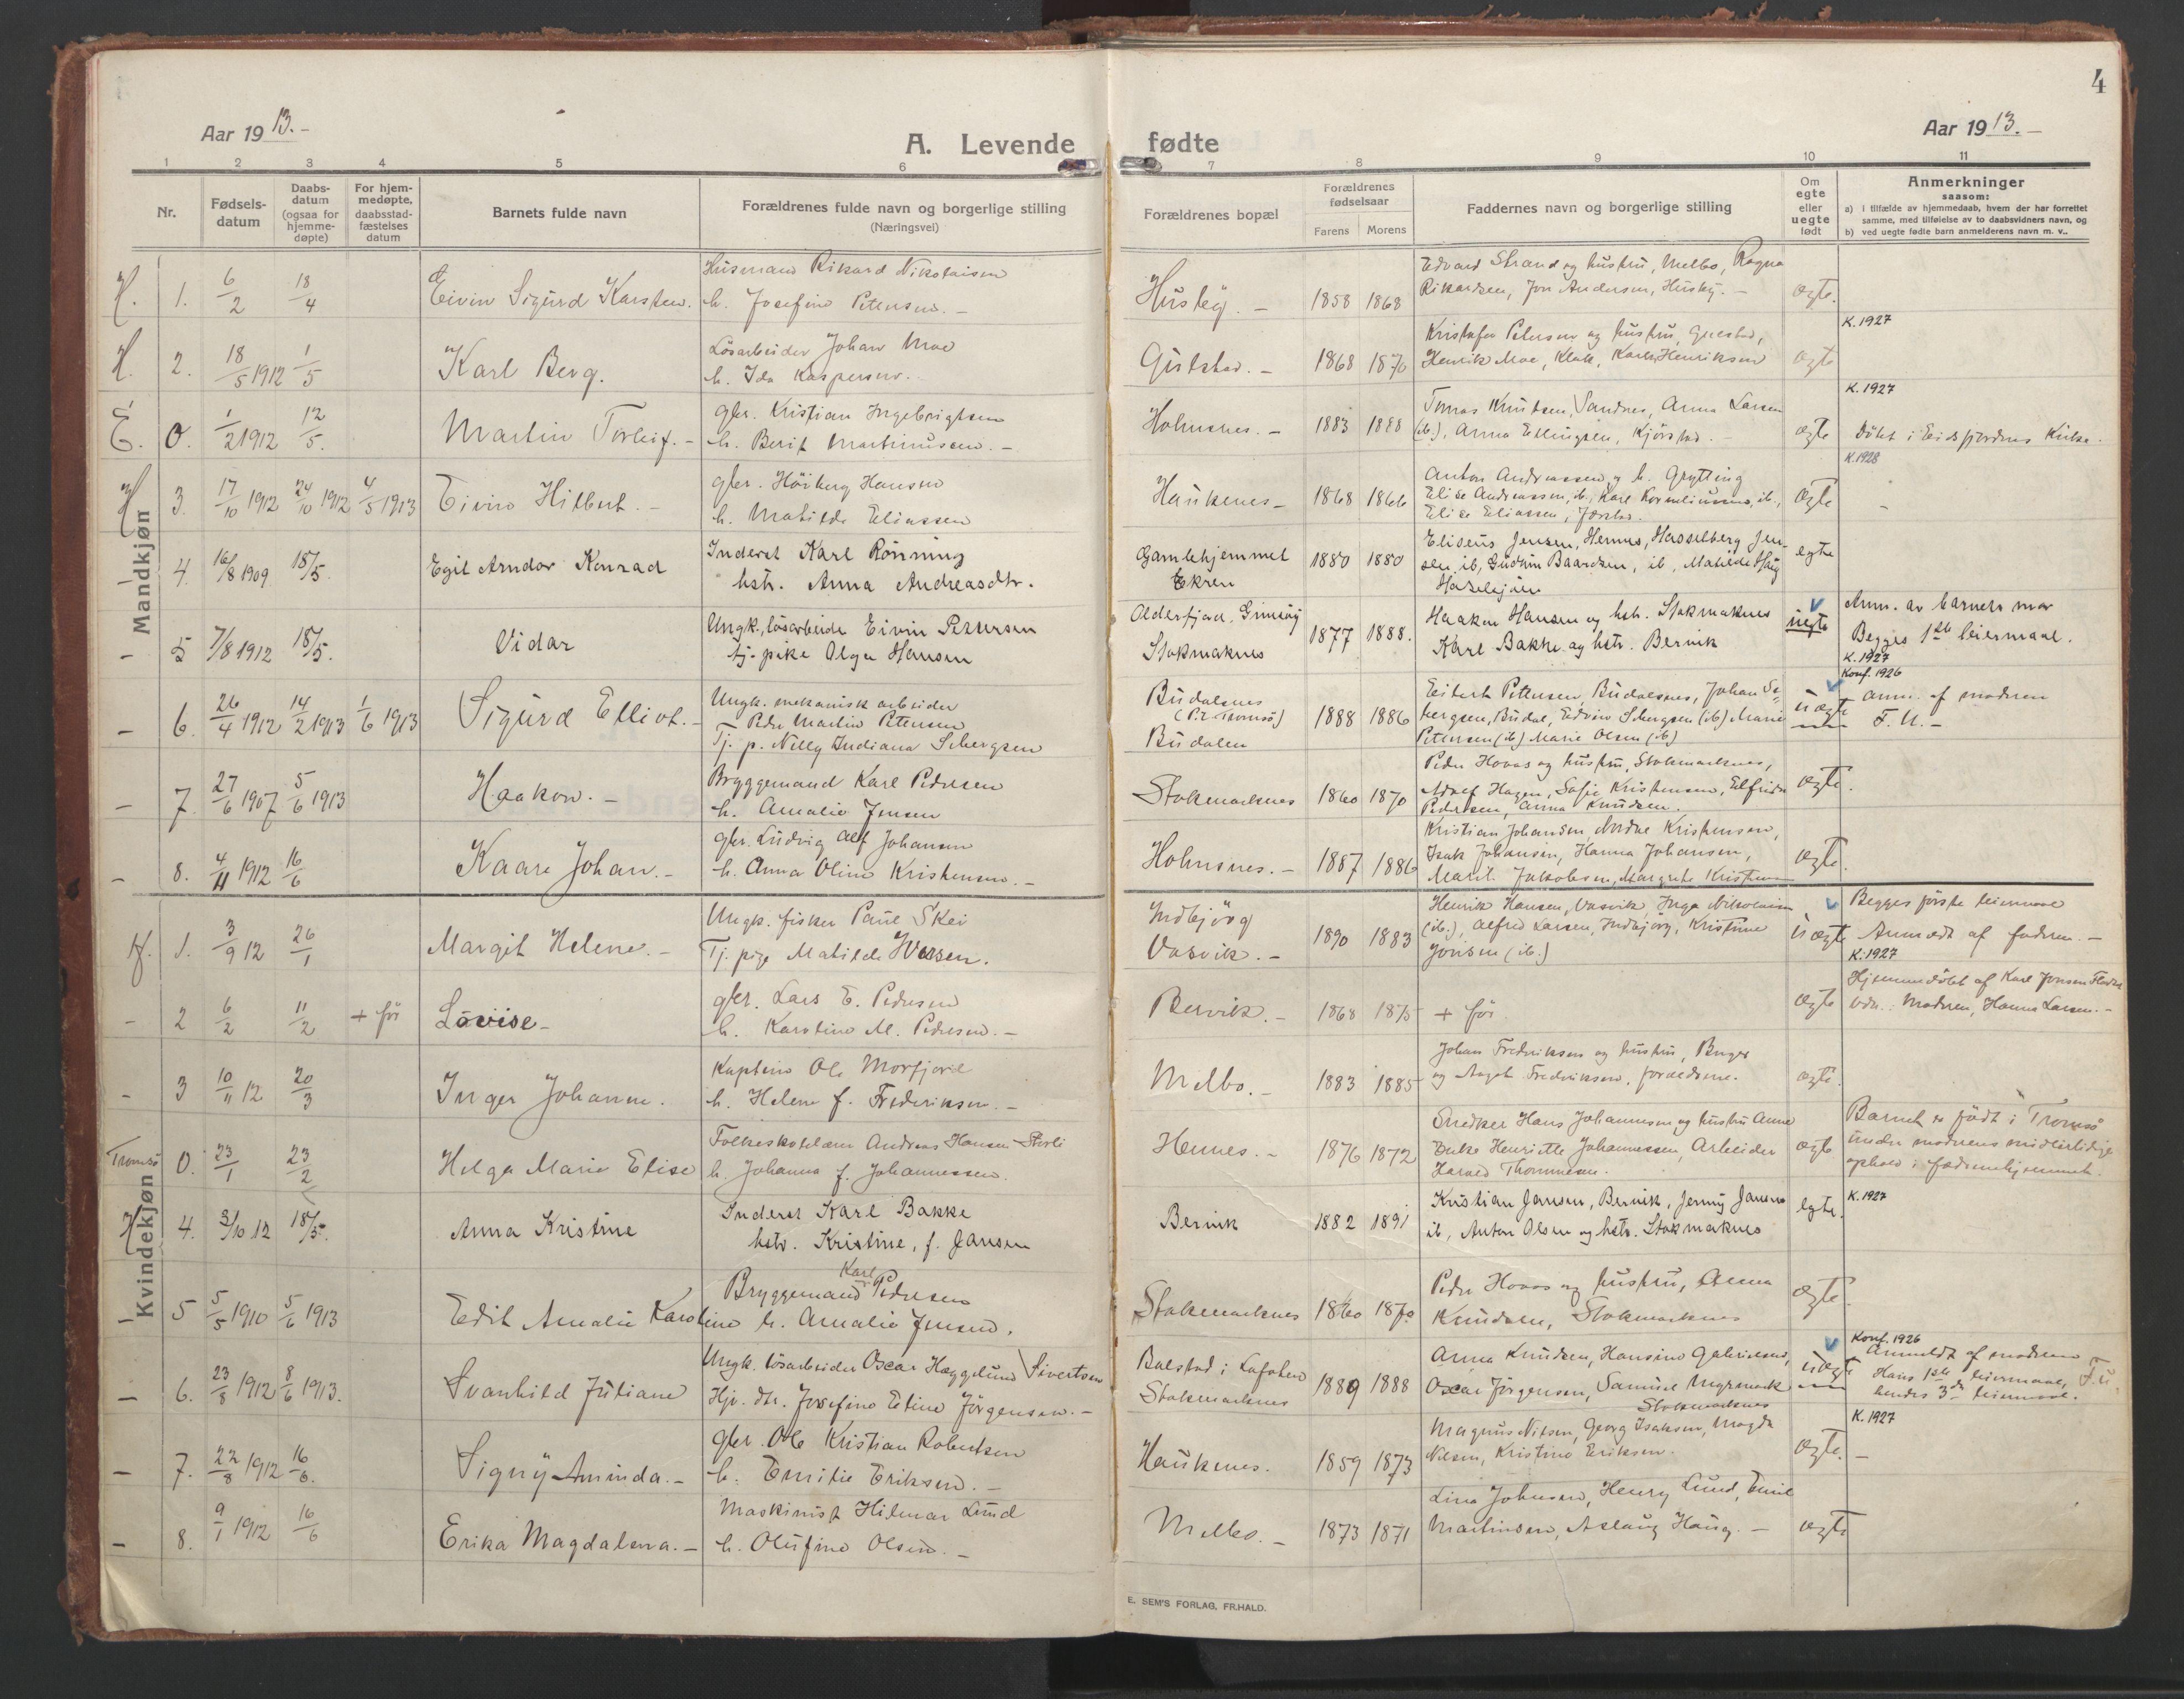 4
Aar 19 13.-
A. Levende fødte
Aar 19 13.-
1 2 3 4 5 6 7 8 9 10 11
Nr.
Fødsels-
datum
Daabs-
datum
(ogsaa for
hjemme-
døpte)
For hjem-
medøpte,
daabsstad-
fæstelses
datum
Barnets fulde navn
Forældrenes fulde navn og borgerlige stilling
(Næringsvei)
Forældrenes bopæl
Forældrenes
fødselsaar
Farens Morens
Faddernes navn og borgerlige stilling
Om
egte
eller
uegte
født
Anmerkninger
saasom:
a) i tilfælde av hjemmedaab, hvem der har forrettet
samme, med tilføielse av to daabsvidners navn, og
b) ved uegte fødte barn anmelderens navn m. v..
Mandkjøn
H. 1. 6/2 18/4 Eivin Sigurd Karsten.
Husmand Rikard Nikolaisen
h. Josefine Petersen. -
Husby. - 1858 1868
Edvard Strand og hustru, Melbo, Ragna
Rikardsen, Jon Andersen, Husby. -
ægte.
H. 2. 18/5 1912 1/5 Karl Berg.
Løsarbeider Johan Moe
h. Ida Kaspersen.
Gulstad. - 1868 1870
Kristofer Petersen og hustru, Gulstad,
Henrik Moe, Karl Henriksen
ægte
K. 1927
E. 0. 1/2 1912 12/5. Martin Torleif. -
gbr. Kristian Ingebrigtsen
h. Berit Martinussen. -
Holmsnes. - 1883 1888
Tomas Knutsen, Sandnes, Anna Larsen
(ib.), Anna Ellingsen, Kjørstad. -
ægte
K. 1927
Døbt i Eidsfjordens Kirke.
H 3. 17/10 1912 24/10 1912 4/5 1913 Eivin Hilbert. -
gbr. Høiberg Hansen
h. Matilde Eliassen
Haukenes - 1868 1866
Anton Andreassen og h. Grytting
Elise Andreassen, ib, Karl Korneliussen, ib.,
Elise Eliassen,
ægte
K. 1928
-
- 4. 16/8 1909 18/5. Egil Arndor Konrad
Inderst Karl Rønning
hstr. Anna Andreasdtr.
Gamlehjemmet
Ekren
1880 1880
Eliseus Jensen, Hennes, Hasselberg Jen-
sen ib, Gudrun Baardsen, ib, Matilde Haug
egte
- 5 7/8 1912 18/5. Vidar
Ungk., løsarbeide Eivin Petersen
tj. pike Olga Hansen
Olderfjord, Gimsøy
Stokmaknes
1877 1888.
Haakon Hansen og hstr. Stokmaknes
Karl Bakke og hstr. Bervik
uegte
Anm. av barnets mor
Begges 1ste leiermaal.
K. 1927
- 6. 26/4 1912 14/2 1913 1/6 1913 Sigurd Elliot. -
Ungk. mekanisk arbeider
Peder Martin Petersen
Tj. p. Nelly Indiana Sebergsen
Budalsnes
(Pr. Tromsø)
Budalen
1888 1886
Eilert Petersen, Budalsnes, Johan Se-
bergsen, Budal, Edvin Sebergsen (ib) Marie
Petersen (ib) Marie Olsen (ib)
uægte
Konf. 1926
anm. af moderen
F. U. -
- 7. 27/6 1907 5/6 1913 Haakon. -
Bryggemand Karl Pedersen
h. Amalie Jensen
Stokmarknes 1860 1870
Peder Hovos og hustru, Stokmarknes,
Adolf Hagen, Sofie Kristensen, Elfrida
Pedersen, Anna Knudsen.
ægte.
- 8. 4/11 1912 16/6 Kaare Johan. -
gbr. Ludvig Alf Johansen
h. Anna Oline Kristensen. -
Holmsnes. - 1887 1886
Kristian Johansen, Nordal Kristensen,
Isak Johansen, Hanna Johansen,
Marit Jakobsen, Margrete Kristensen
ægte.
Kvindekjøn
H. 1. 3/9 12 26/1 Margit Helene. -
Ungk. fisker Paul Skei
Tj. pige Matilde Iversen.
Indbjørg
Vasvik. -
1890 1883
Henrik Hansen, Vasvik, Inga Nikolaisen
(ib.), Alfred Larsen, Indbjørg, Kristine
Jonsen (ib.)
uægte
Begges første leiermaal
Anmeldt af faderen. -
K. 1927
- 2 6/2 11/2 + før Lovise -
gbr. Lars E. Pedersen
h. Karoline M. Pedersen. -
Bervik. - 1868 1875
+ før
ægte
Hjemmedøbt af Karl Jonsen
vdn.: Moderen, Hanna Larsen. -
- 3 10/11 12 20/3 Inger Johanne.
Kaptein Ole Morfjord
h. Helene f. Frederiksen. -
Melbo. - 1883 1885
Johan Frederiksen og hustru, Birger
og Aagot Frederiksen, forældrene.
ægte.
Tromsø 0. 23/1 23/2 Helga Marie Elise
Folkeskolelærer Andreas Hansen
h. Johanna f. Johannessen.
Hennes. - 1876 1872
Snedker Hans Johannesen og hustru Anna
Henriette Johannessen, Arbeider
Harald Thommesen.
ægte
Barnet er født i Tromsø
under moderens midlertidige
ophold i fædrenehjemmet.
H 4. 3/10 12 18/5. Anna Kristine
Inderst Karl Bakke
hstr. Kristine, f. Jansen
Bervik 1882 1891
Kristian Jansen, Bervik, Jenny Jansen
ib, Anton Olsen og hstr. Stokmaknes
egte.
K. 1927
- 5 5/5 1910 5/6 1913 Edit Amalie Karoline
Bryggemand Karl Pedersen
h. Amalie Jensen.
Stokmarknes 1860 1870
Peder Hovos og hustru, Anna
Knudsen, Stokmarknes
ægte.
- 6. 23/8 1912 8/6 1913. Svanhild Juliane
Ungk. løsarbeider Oscar Heggelund Sivertsen
Hjv. dtr. Josefine Eline Jørgensen. -
Balstad i Lofoten
Stokmarknes
1889 1888
Anna Knudsen, Hansine Gabrielsen,
Oscar Jørgensen, Samuel Myrmark
Stokmarknes
uægte
Konf. 1926
Anmeldt af moderen
Hans 1ste leiermaal, F. U.
hendes 3de leiermaal.
- 7. 22/8 1912 16/6. Signy Aminda. -
gbr. Ole Kristian Robertsen
h. Emilie Eriksen. -
Haukenes. 1859 1873
Magnus Nilsen, Georg Isaksen, Magda
Nilsen, Kristine Eriksen.
ægte.
K. 1927
-
- 8. 9/1 1912 16/6 Erika Magdalena. -
Maskinist Hilmar Lund
h. Olufine Olsen. -
Melbo. - 1873 1871
Lina Johnsen, Henry Lund, Emil
Martinsen, Aslaug Haug. -
ægte
E. SEM'S FORLAG, FR.HALD.